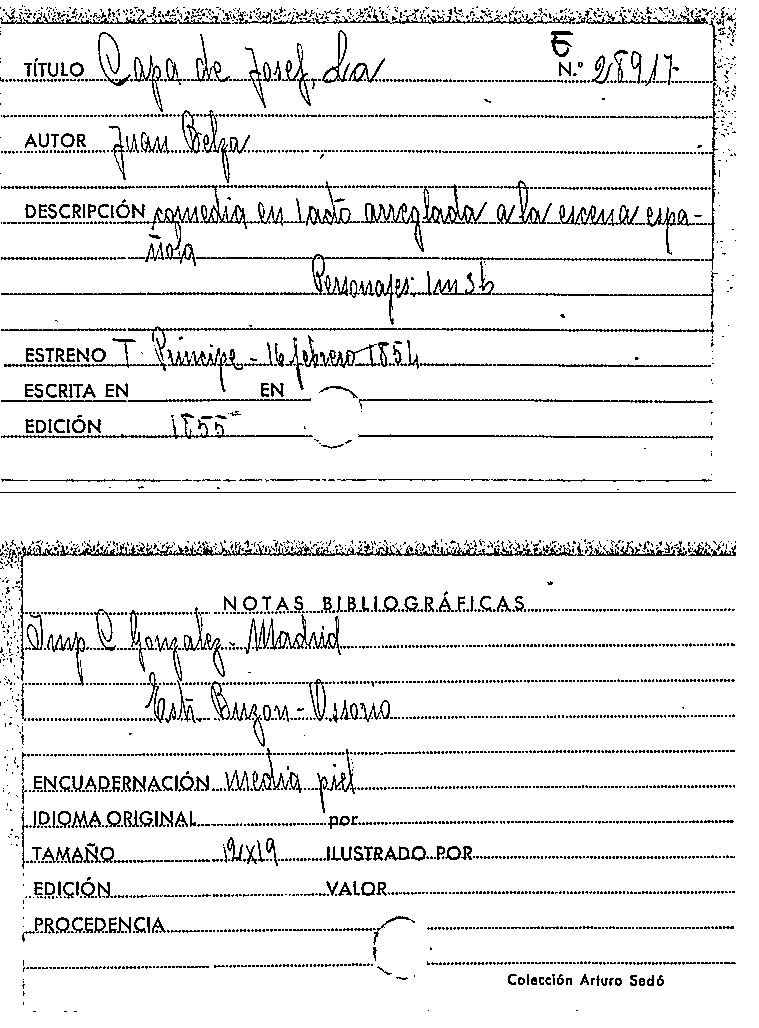 TÍTULO Capa de Josef, La
E
N.º 28917
AUTOR Juan Belza
DESCRIPCIÓN comedia en 1 acto arreglada a la escena espa-
ñola
Personajes: 1m 3h
ESTRENO T. Principe - 16 febrero 1854
ESCRITA EN EN
EDICIÓN 1855
NOTAS BIBLIOGRÁFICAS
Imp C Gonzalez - Madrid
Buzon - Ossorio
ENCUADERNACIÓN media piel
IDIOMA ORIGINAL por
TAMAÑO 12x19 ILUSTRADO POR
EDICIÓN VALOR
PROCEDENCIA
Colección Arturo Sedó